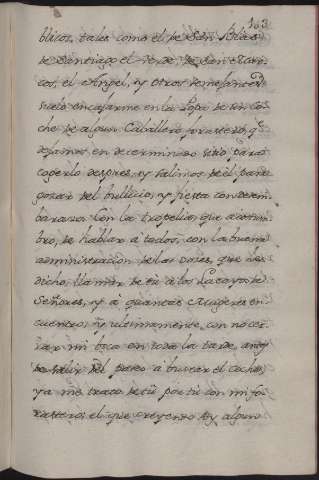 103
blicos, tales como el de San Blas
de Santiago el verde, de San Marcos
cos, el Angel, y otros semejantes
suelo encajarme en la Popa de un co
che de algun Caballero forastero, q.e
dejamos en determinado sitio para
cogerlo despues, y salimos de el para
gozar del bullicio, y fiesta con desem
barazo. Con la tropelia, que acostum
bro, de hablar à todos, con la buena
administracion de las voces, que he
dicho, llamar de tu à los Lacayos de
Señores, y à quantas Mugeres en
cuentro, y ultimamente, con no cer
rar mi boca en toda la tarde, antes
de salir del paseo à buscar el coche,
ya me trato de tu por tu con mi fo
rastero, el que creyendo soy alguno